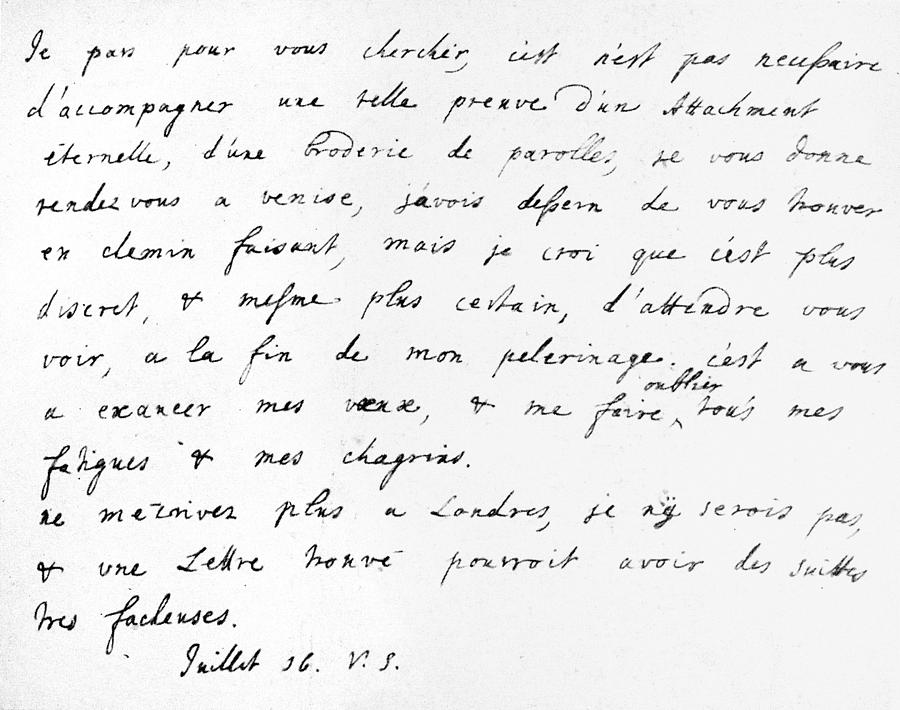 Je pars pour vous chercher, c'est n'est pas necessaire
d'accompagner une telle preuve d'un Attachment
éternelle, d'une broderie de parolles, je vous donne
rendez vous a venise, j'avois dessein de vous trouver
en clemin faisant, mais je croi que c'est plus
discret, & mesme plus certain, d'attendre vous
voir, a la fin de mon pelerinage. c'est a vous
a exaucer mes vœux, & me faire oublier tous mes
fatigues & mes chagrins.
ne m'ecrivez plus a Londres, je n'y serois pas,
& une Lettre trouvé pourroit avoir des suittes
tres facheuses.
Juillet 16. V. S.